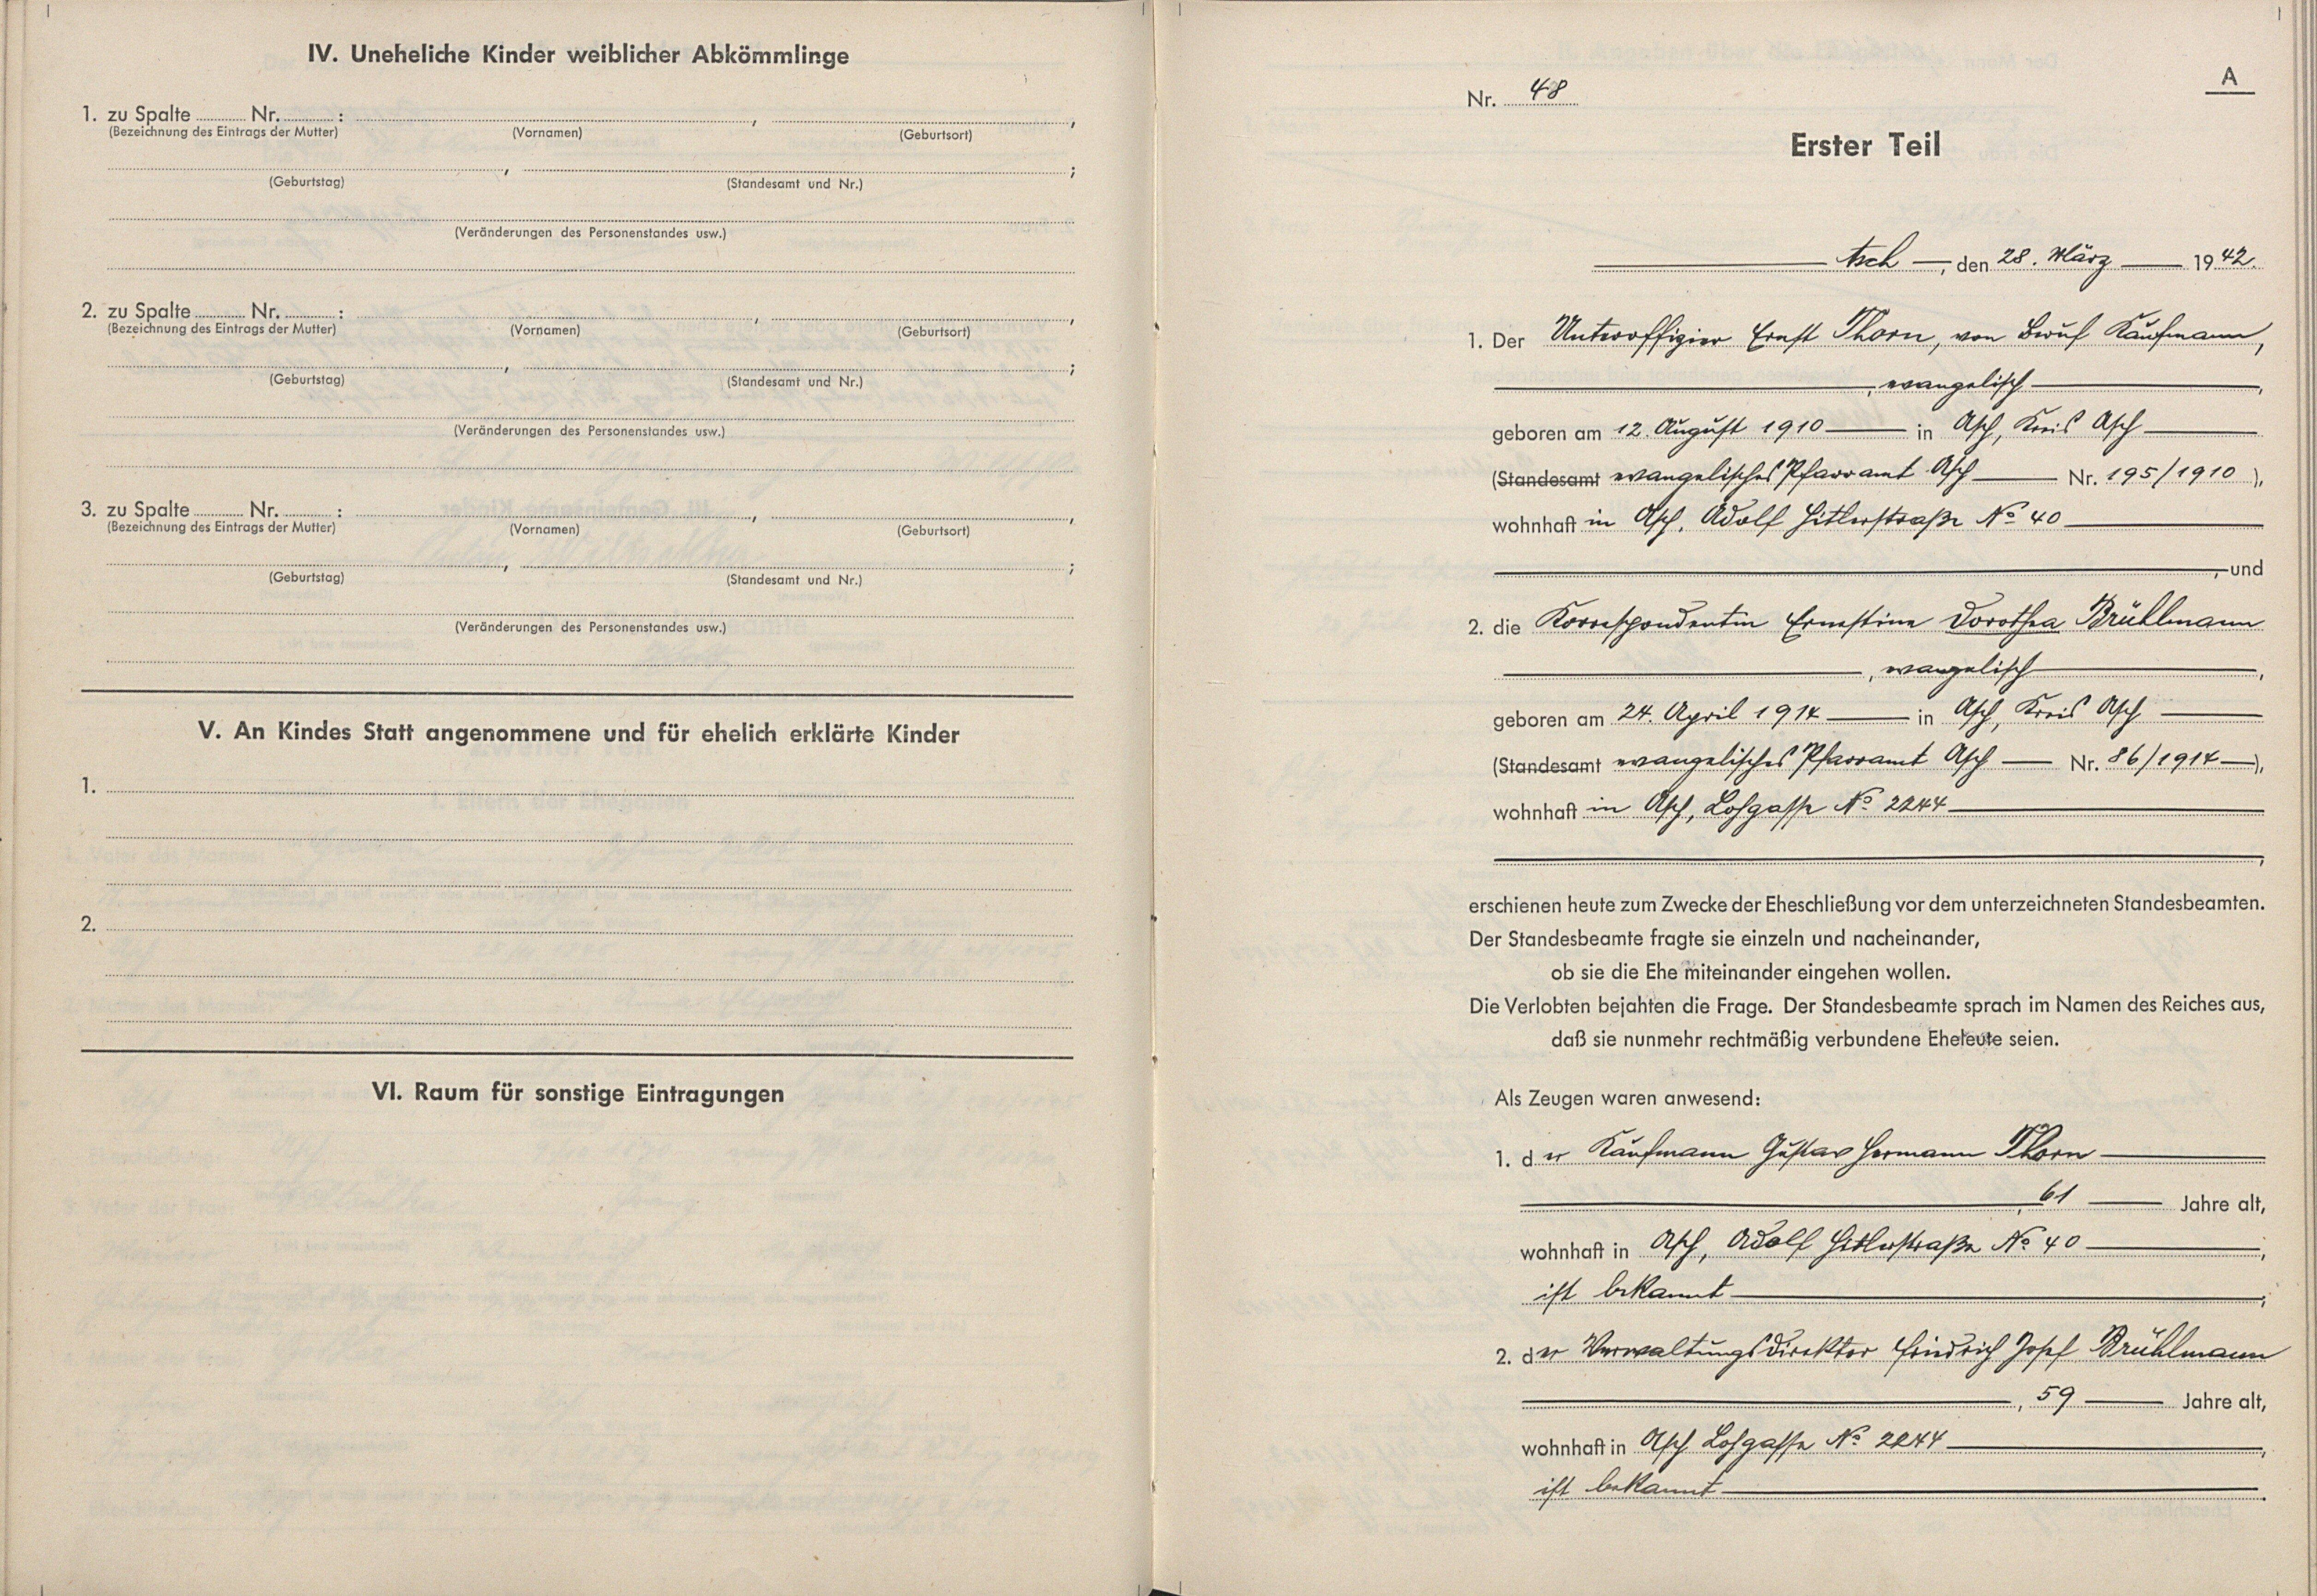 IV. Uneheliche Kinder weiblicher Abkömmlinge
1. zu Spalte Nr. : , ,
(Bezeichnung des Eintrags der Mutter) (Vornamen) (Geburtsort)
, ;
(Geburtstag) (Standesamt und Nr.)
(Veränderungen des Personenstandes usw.)
2. zu Spalte Nr. : , ,
(Bezeichnung des Eintrags der Mutter) (Vornamen) (Geburtsort)
, ;
(Geburtstag) (Standesamt und Nr.)
(Veränderungen des Personenstandes usw.)
3. zu Spalte Nr. : , ,
(Bezeichnung des Eintrags der Mutter) (Vornamen) (Geburtsort)
, ;
(Geburtstag) (Standesamt und Nr.)
(Veränderungen des Personenstandes usw.)
V. An Kindes Statt angenommene und für ehelich erklärte Kinder
1.
2.
VI. Raum für sonstige Eintragungen
A
Nr. 48
Erster Teil
Asch, den 28. März 1942.
1. Der Unteroffizier Ernst Thorn, von Beruf Kaufmann,
, evangelisch,
geboren am 12. August 1910 in Asch, Kreis Asch
(Standesamt evangelisches Pfarramt Asch Nr. 195/1910),
wohnhaft in Asch, Adolf Hitlerstraße No 40
, und
2. die Korrespondentin Ernestine Dorothea Brühlmann
, evangelisch,
geboren am 24. April 1914 in Asch, Kreis Asch
(Standesamt evangelisches Pfarramt Asch Nr. 86/1914),
wohnhaft in Asch, Lohgasse No 2244
,
erschienen heute zum Zwecke der Eheschließung vor dem unterzeichneten Standesbeamten.
Der Standesbeamte fragte sie einzeln und nacheinander,
ob sie die Ehe miteinander eingehen wollen.
Die Verlobten bejahten die Frage. Der Standesbeamte sprach im Namen des Reiches aus,
daß sie nunmehr rechtmäßig verbundene Eheleute seien.
Als Zeugen waren anwesend:
1. der Kaufmann Gustav Hermann Thorn
, 61 Jahre alt,
wohnhaft in Asch, Adolf Hitlerstraße No 40,
ist bekannt;
2. der Verwaltungsdirektor Josef Brühlmann
, 59 Jahre alt,
wohnhaft in Asch Lohgasse No 2244,
ist bekannt.